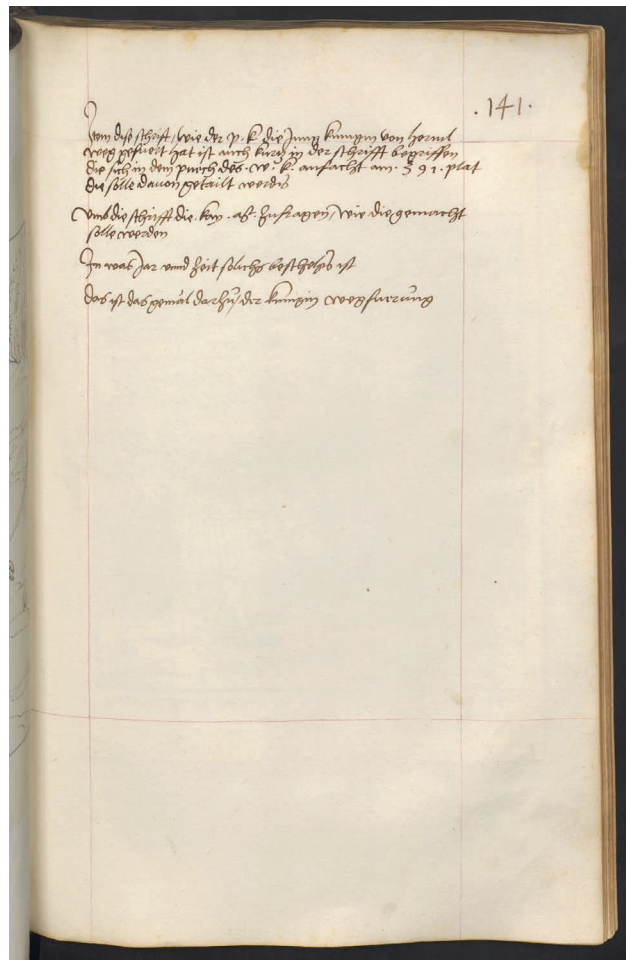 .141.
Item dise schrift, wie der p. k. die Jung kunigin von hernil
weg gefuert hat ist auch kurtz in der schrifft begriffen
die sich in dem puech des .w. k. anfacht am .391. plat
die solle davon getailt werden
Umb die schrifft die kay. ast. zufragen, wie die gemacht
solle werden
In was Jar unnd Zeit solichs beschehen ist
das ist das gemäl darzu, der kunigin wegfuerung